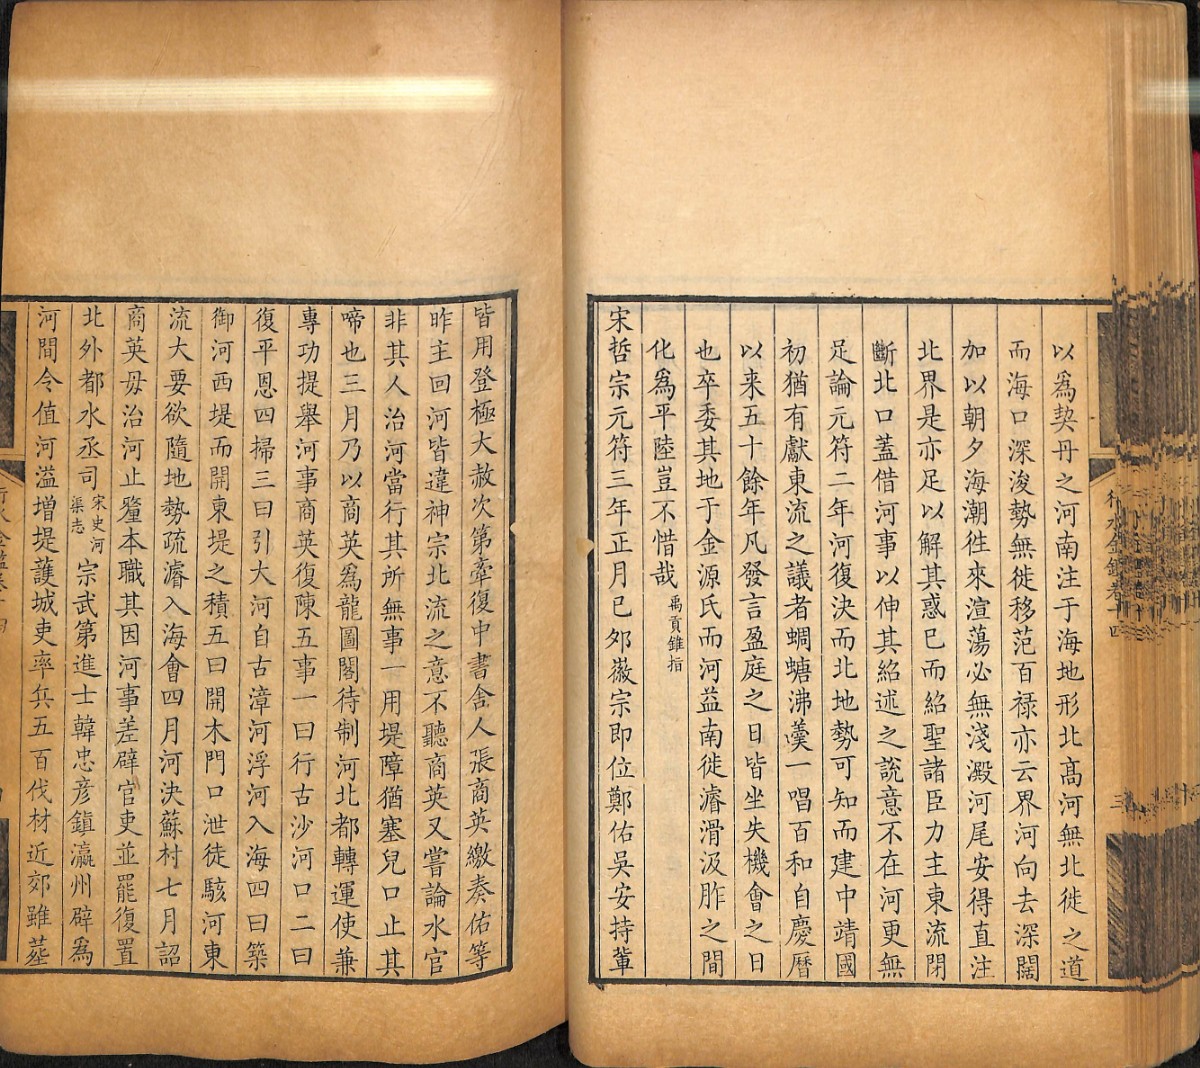 以爲契丹之河南注于海地形北髙河無北徙之道
而海口深浚勢無徙移范百禄亦云界河向去深闊
加以朝夕海潮徃來渲蕩必無淺澱河尾安得直注
北界是亦足以解其惑已而紹聖諸臣力主東流閉
斷北口蓋借河事以伸其紹述之說意不在河更無
足論元符二年河復決而北地勢可知而建中靖國
初猶有獻東流之議者蜩螗沸羹一唱百和自慶曆
以来五十餘年凡發言盈庭之日皆坐失機會之日
也卒委其地于金源氏而河益南徙濬滑汲胙之間
化爲平陸豈不惜哉禹貢錐指
宋哲宗元符三年正月己夘徽宗即位鄭佑吳安持輩
皆用登極大赦次第牽復中書舍人張商英繳奏佑等
昨主回河皆違神宗北流之意不聽商英又嘗論水官
非其人治河當行其所無事一用堤障猶塞兒口止其
啼也三月乃以商英爲龍圖閣待制河北都轉運使兼
專功提舉河事商英復陳五事一曰行古沙河口二曰
復平恩四掃三曰引大河自古漳河浮河入海四曰築
御河西堤而開東堤之積五曰開木門口泄徒駭河東
流大要欲隨地勢疏濬入海會四月河決蘇村七月詔
商英毋治河止釐本職其因河事差辟官吏並罷復置
北外都水丞司宋史河渠志宗武第進士韓忠彦鎭瀛州辟爲
河間令值河溢增堤護城吏率兵五百伐材近郊雖塟